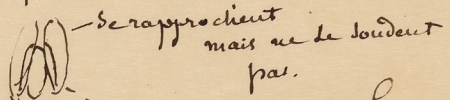 Se rapprochent
mais ne se soudent
pas.